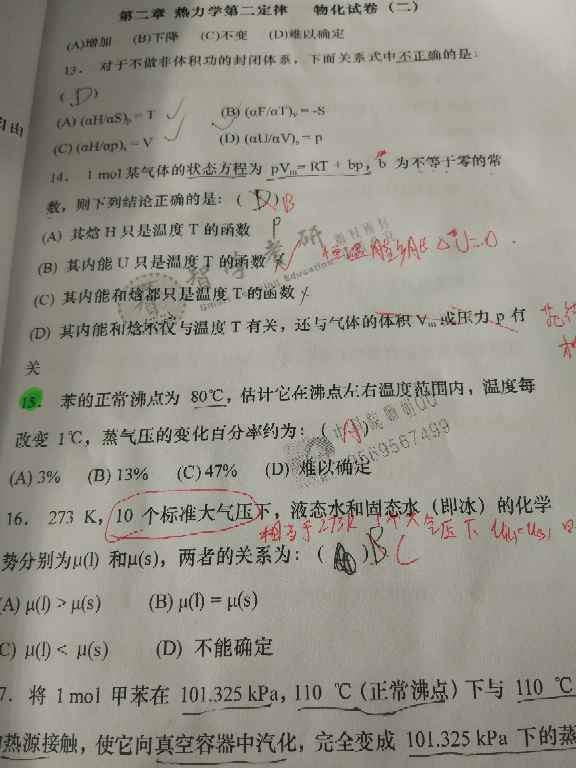 第二章 热力学第二定律 物化试卷（二）
(A)增加 (B)下降 (C)不变 (D)难以确定
13. 对于不做非体积功的封闭体系，下面关系式中不正确的是：
( D )
(A) (αH/αS)ₚ = T (B) (αF/αT)ᵥ = -S
(C) (αH/αp)ₛ = V (D) (αU/αV)ₛ = p
14. 1 mol 某气体的状态方程为 pVₘ= RT + bp, b 为不等于零的常
数，则下列结论正确的是：( D ) B
(A) 其焓 H 只是温度 T 的函数 P
(B) 其内能 U 只是温度 T 的函数
(C) 其内能和焓都只是温度 T 的函数
(D) 其内能和焓不仅与温度 T 有关，还与气体的体积 Vₘ 或压力 p 有
关
15. 苯的正常沸点为 80℃，估计它在沸点左右温度范围内，温度每
改变 1℃，蒸气压的变化百分率约为：( A )
9569567499
(A) 3% (B) 13% (C) 47% (D) 难以确定
16. 273 K, 10 个标准大气压下，液态水和固态水（即冰）的化学
相当于273K 1个大气压下
势分别为μ(l) 和μ(s)，两者的关系为：( ) B C
(A) μ(l) > μ(s) (B) μ(l) = μ(s)
C) μ(l) < μ(s) (D) 不能确定
7. 将 1 mol 甲苯在 101.325 kPa, 110 ℃（正常沸点）下与 110 ℃
热源接触，使它向真空容器中汽化，完全变成 101.325 kPa 下的蒸